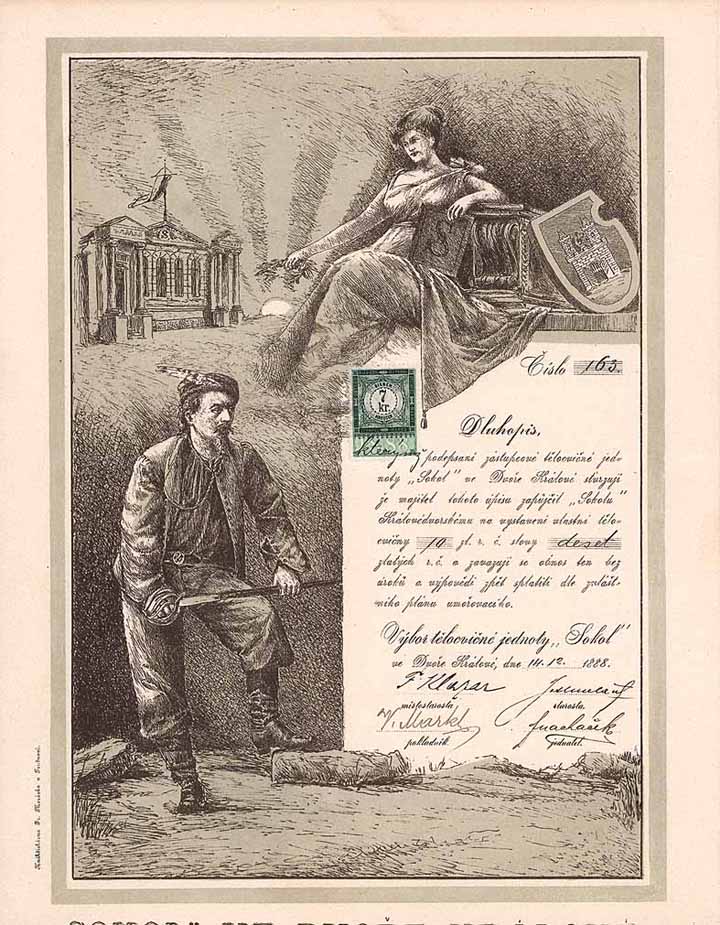 Číslo 163.
7
kr.
Dluhopis,
kterým podepsaní zástupcové tělocvičné jed-
noty „Sokol" ve Dvoře Králové stvrzují
že majitel tohoto úpisu zapůjčil „Sokolu"
Královédvorskému na vystavení vlastní tělo-
cvičny 10 zl. r. č. slovy deset
zlatých r. č. a zavazují se obnos ten bez
úroků a výpovědi zpět splatiti dle zvlášt-
ního plánu umořovacího.
Výbor tělocvičné jednoty „Sokol"
ve Dvoře Králové, dne 14. 12. 1888.
F Klazar
místostarosta. starosta.
V. Markl
pokladník. jednatel.